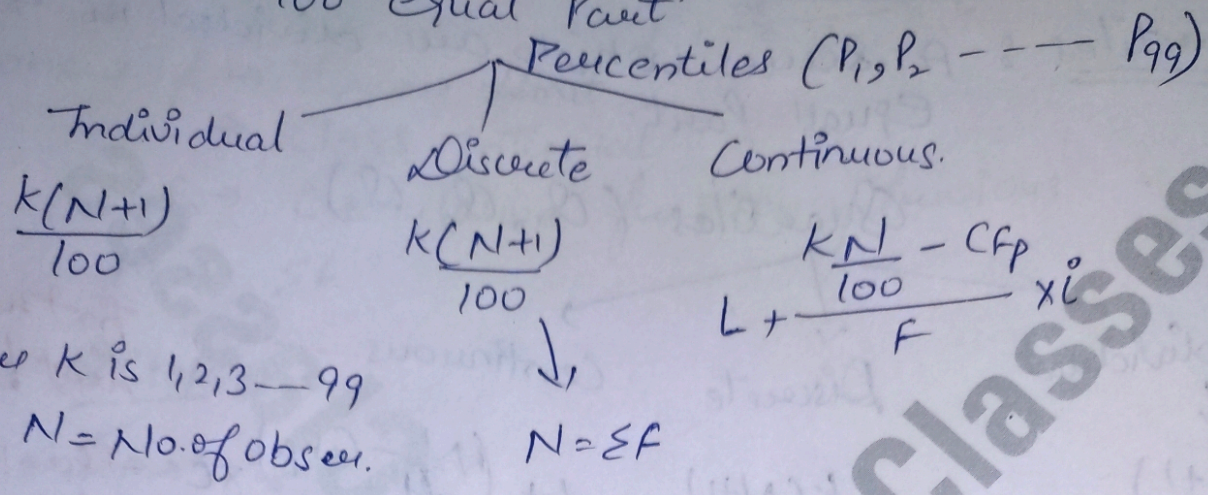 100 Equal Part
Percentiles (P1, P2 ---- P99)
Individual Discrete Continuous.
K(N+1)/100 K(N+1)/100 L + (KN/100 - CFp)/F × i
K is 1,2,3—99
N = No. of obser. N = ΣF
Classes